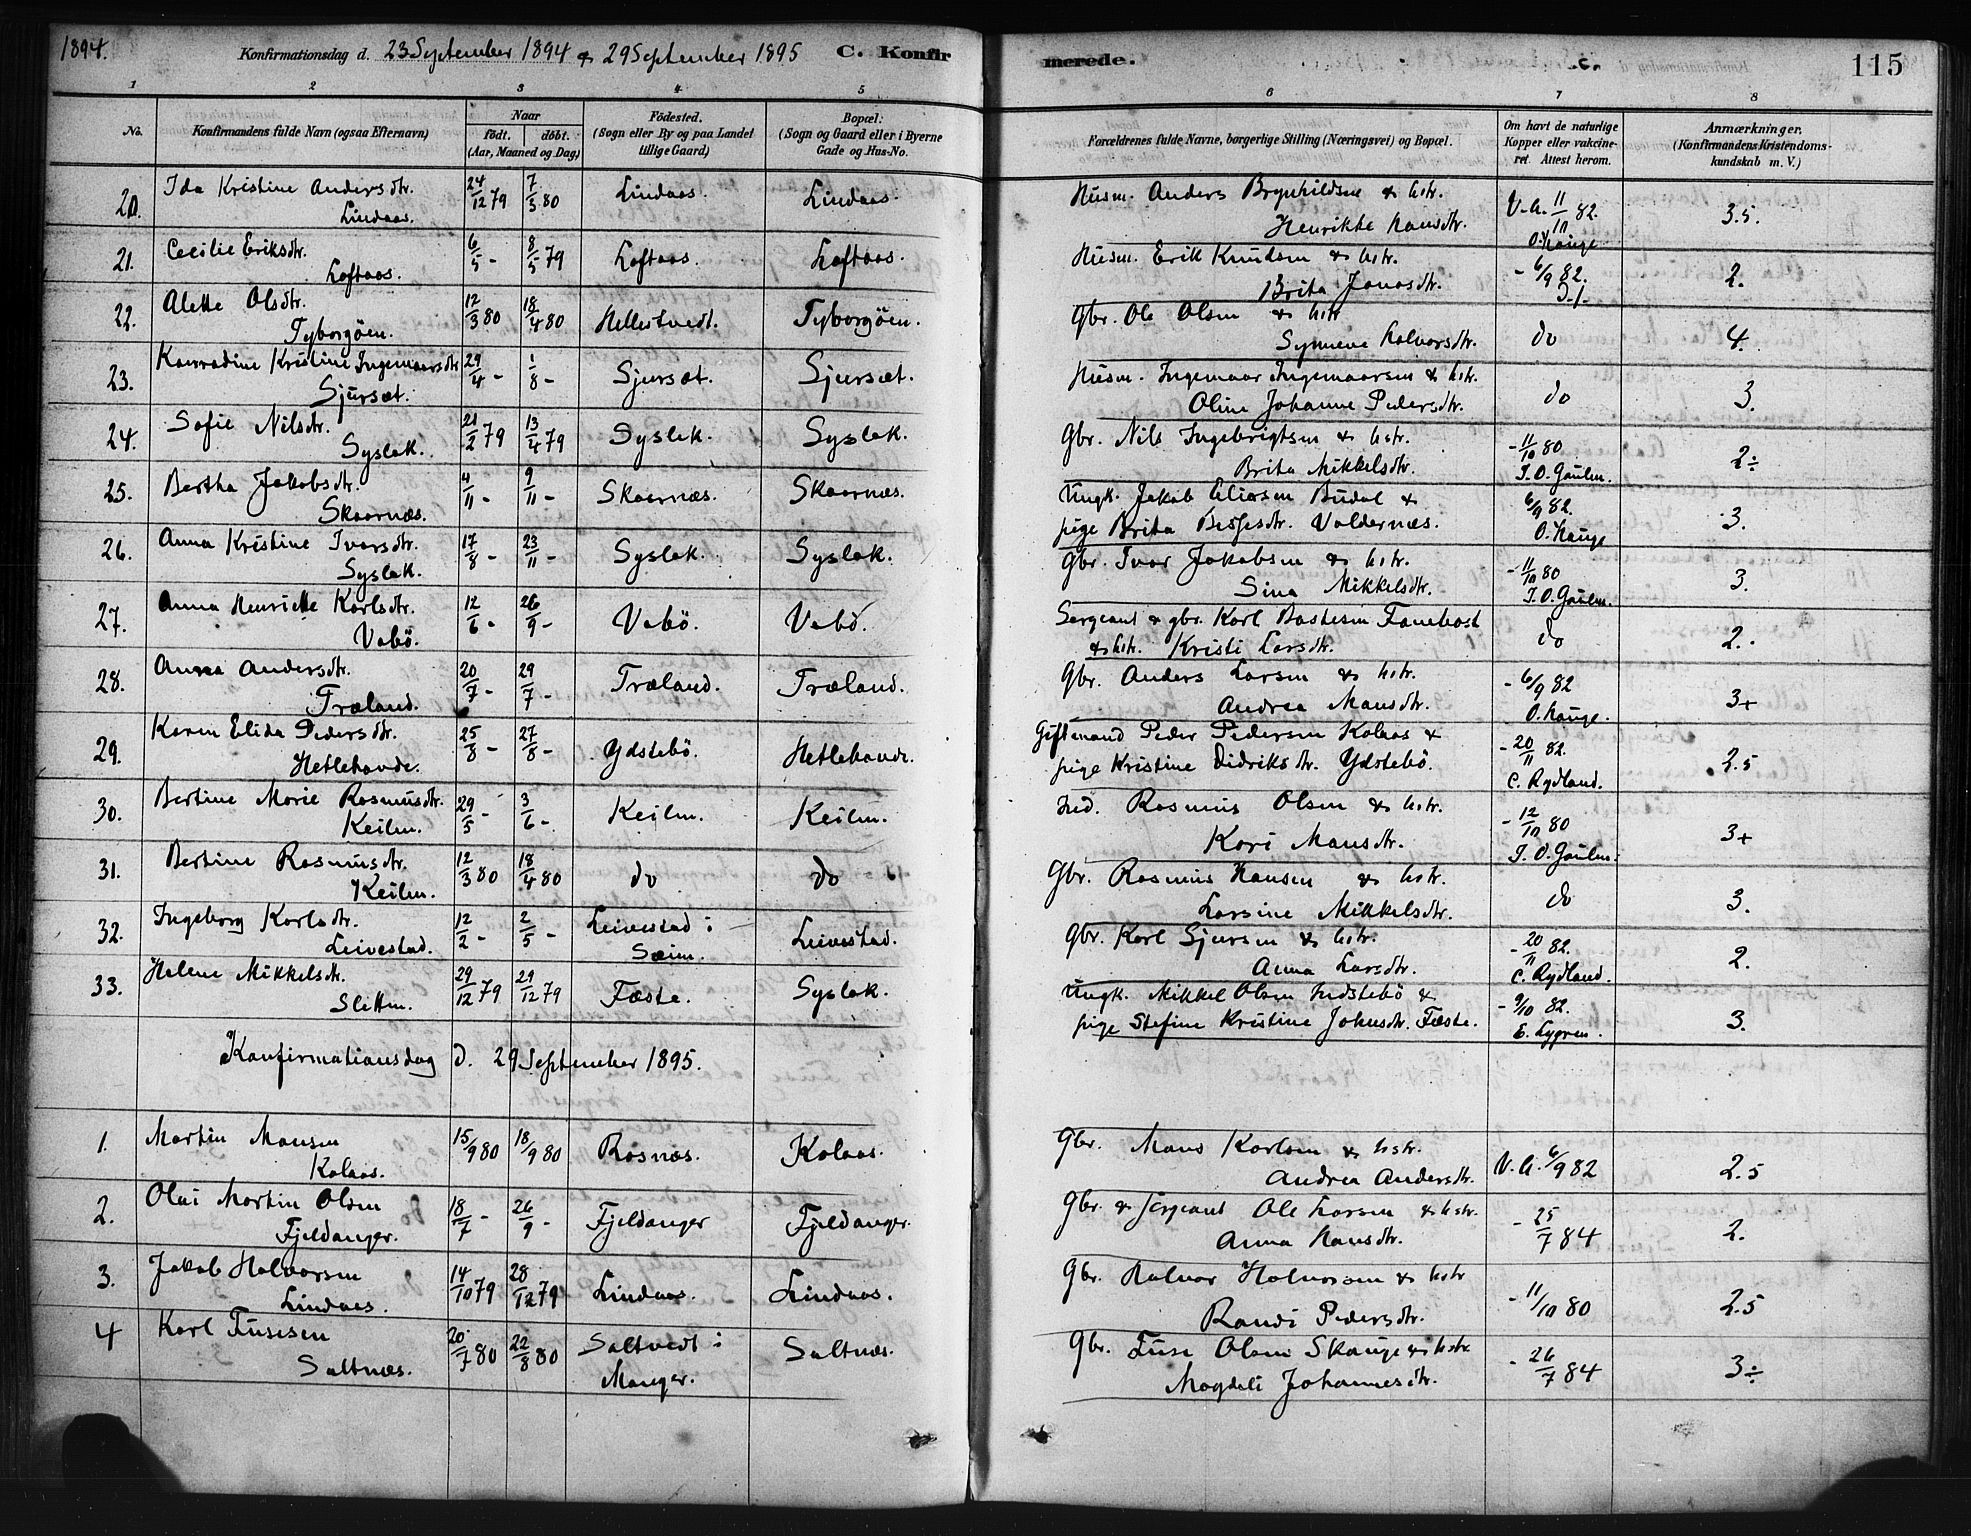 1894. Konfirmationsdag d. 23 September 1894 & 29 September 1895 C. Konfir merede. C. 115
1 2 3 4 5 6 7 8
No.
Konfirmandens fulde Navn (ogsaa Efternavn)
Naar
født. døbt.
(Aar, Maaned og Dag)
Fødested.
(Sogn eller By og paa Landet
tillige Gaard)
Bopæl:
(Sogn og Gaard eller i Byerne
Gade og Hus-No.
Forældrenes fulde Navne, borgerlige Stilling (Næringsvei) og Bopæl.
Om havt de naturlige
Kopper eller vakcine-
ret. Attest herom.
Anmærkninger.
(Konfirmandens Kristendoms-
kundskab m. V.)
20. Ida Kristine Andersdtr. 24/12 79 7/3 80 Lindaas. Lindaas. Husm. Anders Brynhildsen & hstr. V.A. 11/11 82. 3.5.
Lindaas. Henrikke Hansdtr. O. Hauge
21. Cecilie Eriksdtr. 6/5 - 8/5 79 Loftaas. Loftaas. Husm. Erik Knudsen & hstr. - 6/9 82. 2.
Loftaas. Brita Jonasdtr.
22. Alette Olsdtr. 12/3 80 18/4 80 Hellestvedt. Tyborgøen. Gbr. Ole Olsen & hstr do 4.
Tyborgøen. Synneve Halvorsdtr.
23. Konradine Kristine Ingemaarsdtr 29/4 - 1/8 - Sjursæt. Sjursæt. Husm. Ingemaar Ingemaarsen & hstr. do 3.
Sjursæt. Oline Johanne Pedersdtr.
24. Sofie Nilsdtr. 21/2 79 13/4 79 Syslak. Syslak. Gbr. Nils Ingebrigtsen & hstr. - 11/10 80 2÷
Syslak. Brita Mikkelsdtr. T. O. Gaulen.
25. Bertha Jakobsdtr. 4/11 - 9/11 - Skaarnæs. Skaarnæs. Ungk. Jakob Eliasen Budal & 6/9 82. 3.
Skaarnæs. pige Brita Bessesdtr. Valdernæs. O. Hauge
26. Anna Kristine Ivarsdtr. 17/8 - 23/11 - Syslak. Syslak. Gbr. Ivar Jakobsen & hstr. - 11/10 80 3.
Syslak. Sina Mikkelsdtr. T. O. Gaulen.
27. Anna Henriette Karlsdtr. 12/6 - 26/9 - Vabø. Vabø. Sergeant & gbr. Karl Bastesen Fanebost do 2.
Vabø. & hstr. Kristi Larsdtr.
28. Anna Andersdtr. 20/7 - 29/7 - Træland. Træland. Gbr. Anders Larsen & hstr. - 6/9 82 3+
Træland. Andrea Mansdtr. O. Hauge.
29. Karen Elida Pedersdtr. 25/8 - 27/8 - Ydstebø. Hetlehavde. Gift mand Peder Pedersen Kolaas & - 20/11 82. 2.5
Hetlehavde. pige Kristine Didriksdtr. Ydstebø. C. Rydland.
30. Bertine Marie Rasmusdtr. 29/5 - 3/6 - Keilen. Keilen. Ind. Rasmus Olsen & hstr. - 12/10 80 3+
Keilen. Kari Mansdtr. T. O. Gaulen.
31. Bertine Rasmusdtr. 12/3 80 18/4 80 do do Gbr. Rasmus Hansen & hstr. do 3.
Keilen. Larsine Mikkelsdtr.
32. Ingeborg Karlsdtr. 12/2 - 2/5 - Leivestad i Leivestad. Gbr. Karl Sjursen & hstr. - 20/11 82. 2.
Leivestad. Sæim. Anna Larsdtr. C. Rydland.
33. Helene Mikkelsdtr. 29/12 79 29/12 79 Fæste. Syslak. Ungk. Mikkel Olsen Indstebø & - 9/10 82. 3.
Sletten. pige Stefine Kristine Johnsdtr. Fæste. E. Lygren.
Konfirmationsdag d. 29 September 1895.
1. Martin Mansen 15/9 80 18/9 80 Rosnæs. Kolaas. Gbr. Mans Karlsen & hstr. V.A. 6/9 82 2.5
Kolaas. Andrea Andersdtr.
2. Olai Martin Olsen 18/7 - 26/9 - Fjeldanger Fjeldanger. Gbr. & sergeant Ole Larsen & hstr. - 25/7 84 2.
Fjeldanger. Anna Hansdtr.
3. Jakob Halvorsen 14/10 79 28/12 79 Lindaas. Lindaas. Gbr. Halvor Halvorsen & hstr - 11/10 80 2.5
Lindaas. Randi Pedersdtr.
4 Karl Fusesen 20/7 80 22/8 80 Saltvedt i Saltnæs. Gbr. Fuse Olsen Skauge & hstr - 26/7 84 3÷
Saltnæs. Manger. Magdeli Johannesdtr.